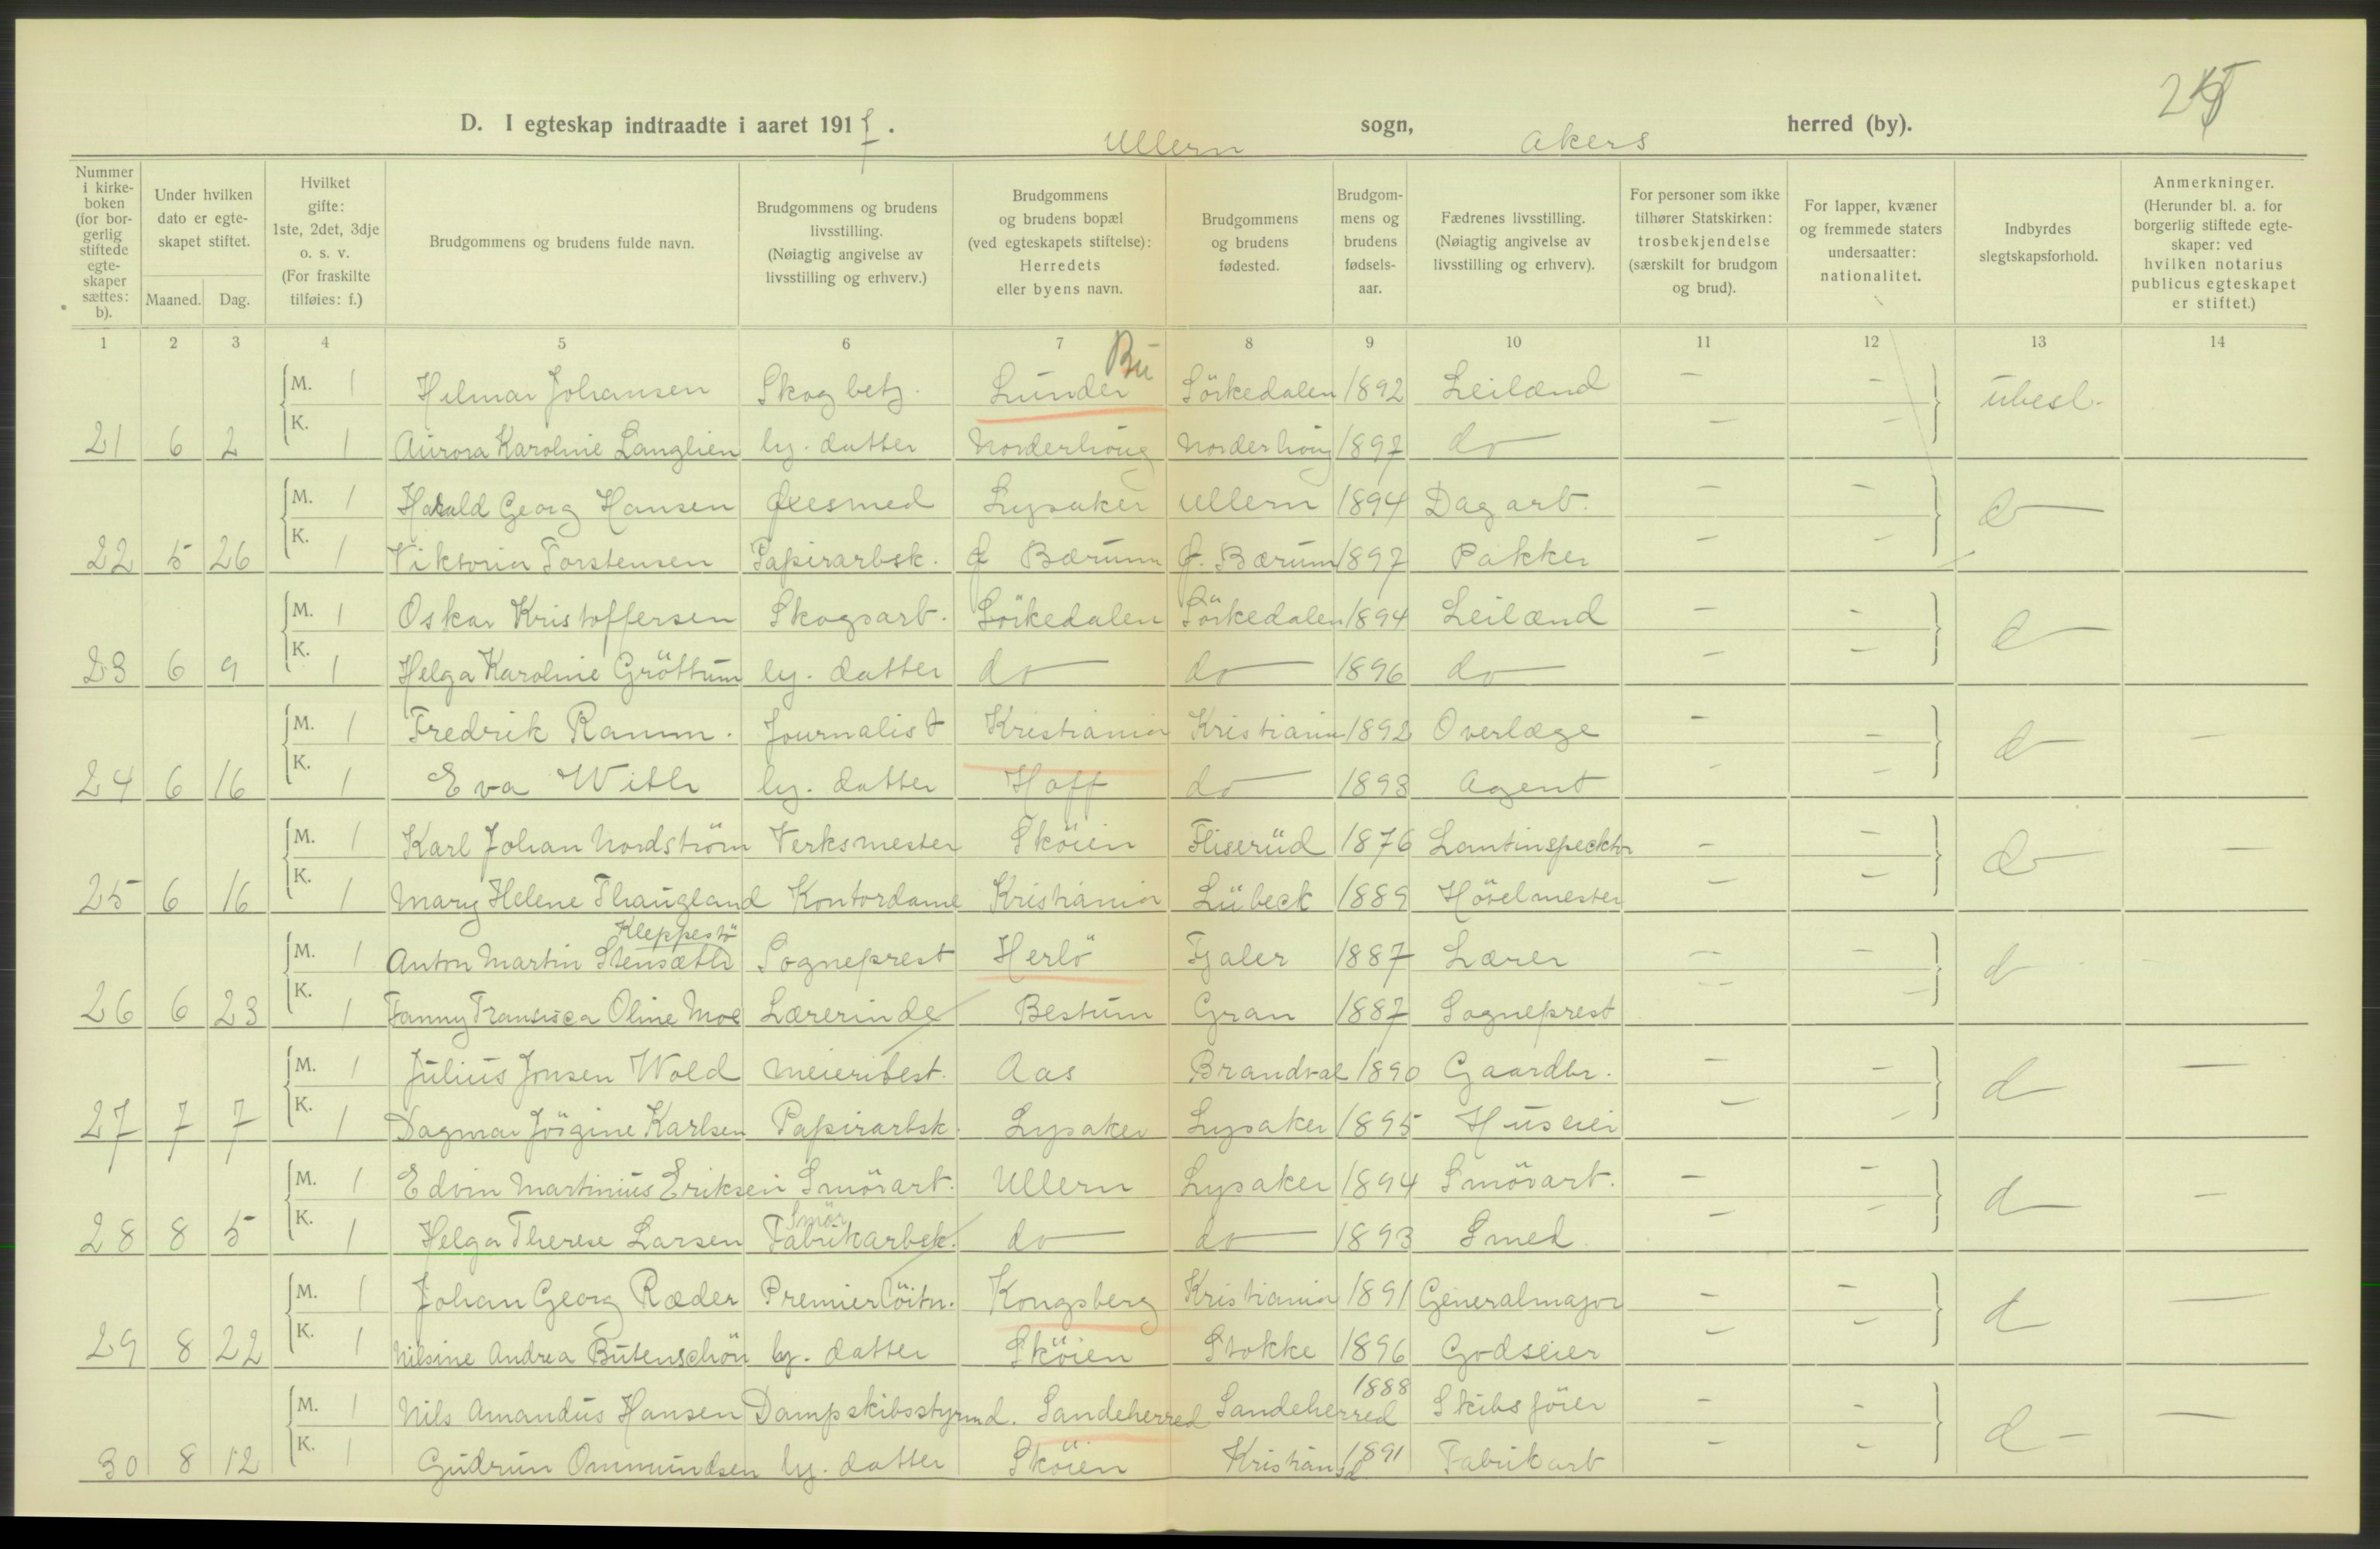 D. I egteskap indtraadte i aaret 1917. Ullern sogn, Akers herred (by).
Nummer i kirkeboken (for borgerlig stiftede egteskaper sættes: b).
Under hvilken dato er egteskapet stiftet.
Maaned. Dag.
Hvilket gifte: 1ste, 2det, 3dje o. s. v. (For fraskilte tilføies: f.)
Brudgommens og brudens fulde navn.
Brudgommens og brudens livsstilling. (Nøiagtig angivelse av livsstilling og erhverv.)
Brudgommens og brudens bopæl (ved egteskapets stiftelse): Herredets eller byens navn.
Brudgommens og brudens fødested.
Brudgommens og brudens fødselsaar.
Fædrenes livsstilling. (Nøiagtig angivelse av livsstilling og erhverv).
For personer som ikke tilhører Statskirken: trosbekjendelse (særskilt for brudgom og brud).
For lapper, kvæner og fremmede staters undersaatter: nationalitet.
Indbyrdes slegtskapsforhold.
Anmerkninger. (Herunder bl. a. for borgerlig stiftede egteskaper: ved hvilken notarius publicus egteskapet er stiftet.)
1 2 3 4 5 6 7 8 9 10 11 12 13 14
M. 1 Helmar Johansen Skogbetj. Lunder Sörkedalen 1892 Leilænd — — ubesl.
21 6 2 K. 1 Aurora Karoline Langlien hj. datter Norderhoug Norderhoug 1897 do — —
M. 1 Harald Georg Hansen Øxesmed Lysaker Ullern 1894 Dagarb. — — d
22 5 26 K. 1 Viktoria Torstensen Papirarbsk. Ø Bærum Ø. Bærum 1897 Pakker — —
M. 1 Oskar Kristoffersen Skogsarb. Sörkedalen Sörkedalen 1894 Leilænd — — d
23 6 9 K. 1 Helga Karoline Gröttum hj. datter do do 1896 do — —
M. 1 Fredrik Ramm. Journalist Kristiania Kristiania 1892 Overlæge — — d —
24 6 16 K. 1 Eva With hj. datter Hoff do 1893 Agent — —
M. 1 Karl Johan Nordström Verksmester Sköien Fliserüd 1876 Lantinspecktör — — d —
25 6 16 K. 1 Mary Helene Thaugland Kontordame Kristiania Lübeck 1889 Hövelmester — —
Kleppestö
M. 1 Anton Martin Stensæth Sogneprest Herlö Fjaler 1887 Lærer — — d
26 6 23 K. 1 Fanny Fransisca Oline Moe Lærerinde Bestum Gran 1887 Sogneprest — —
M. 1 Julius Jonsen Wold Meieribest. Aas Brandval 1890 Gaardbr. — — d —
27 7 7 K. 1 Dagmar Jörgine Karlsen Papirarbsk. Lysaker Lysaker 1895 Huseier — —
M. 1 Edvin Martinius Eriksen Smörarb. Ullern Lysaker 1894 Smörarb. — — d —
Smör
28 8 5 K. 1 Helga Therese Larsen Fabrikarbsk. do do 1893 Smed — —
M. 1 Johan Georg Ræder Premierlöitn. Kongsberg Kristiania 1891 Generalmajor — — d —
29 8 22 K. 1 Nilsine Andrea Butenschön hj. datter Sköien Stokke 1896 Godseier — —
M. 1 Nils Amandus Hansen Dampskibsstyrmd. Sandeherred Sandeherred 1888 Skibsförer — — d —
30 8 12 K. 1 Gudrun Ommundsen hj. datter Sköien Kristiansd 1891 Fabrikarb — —